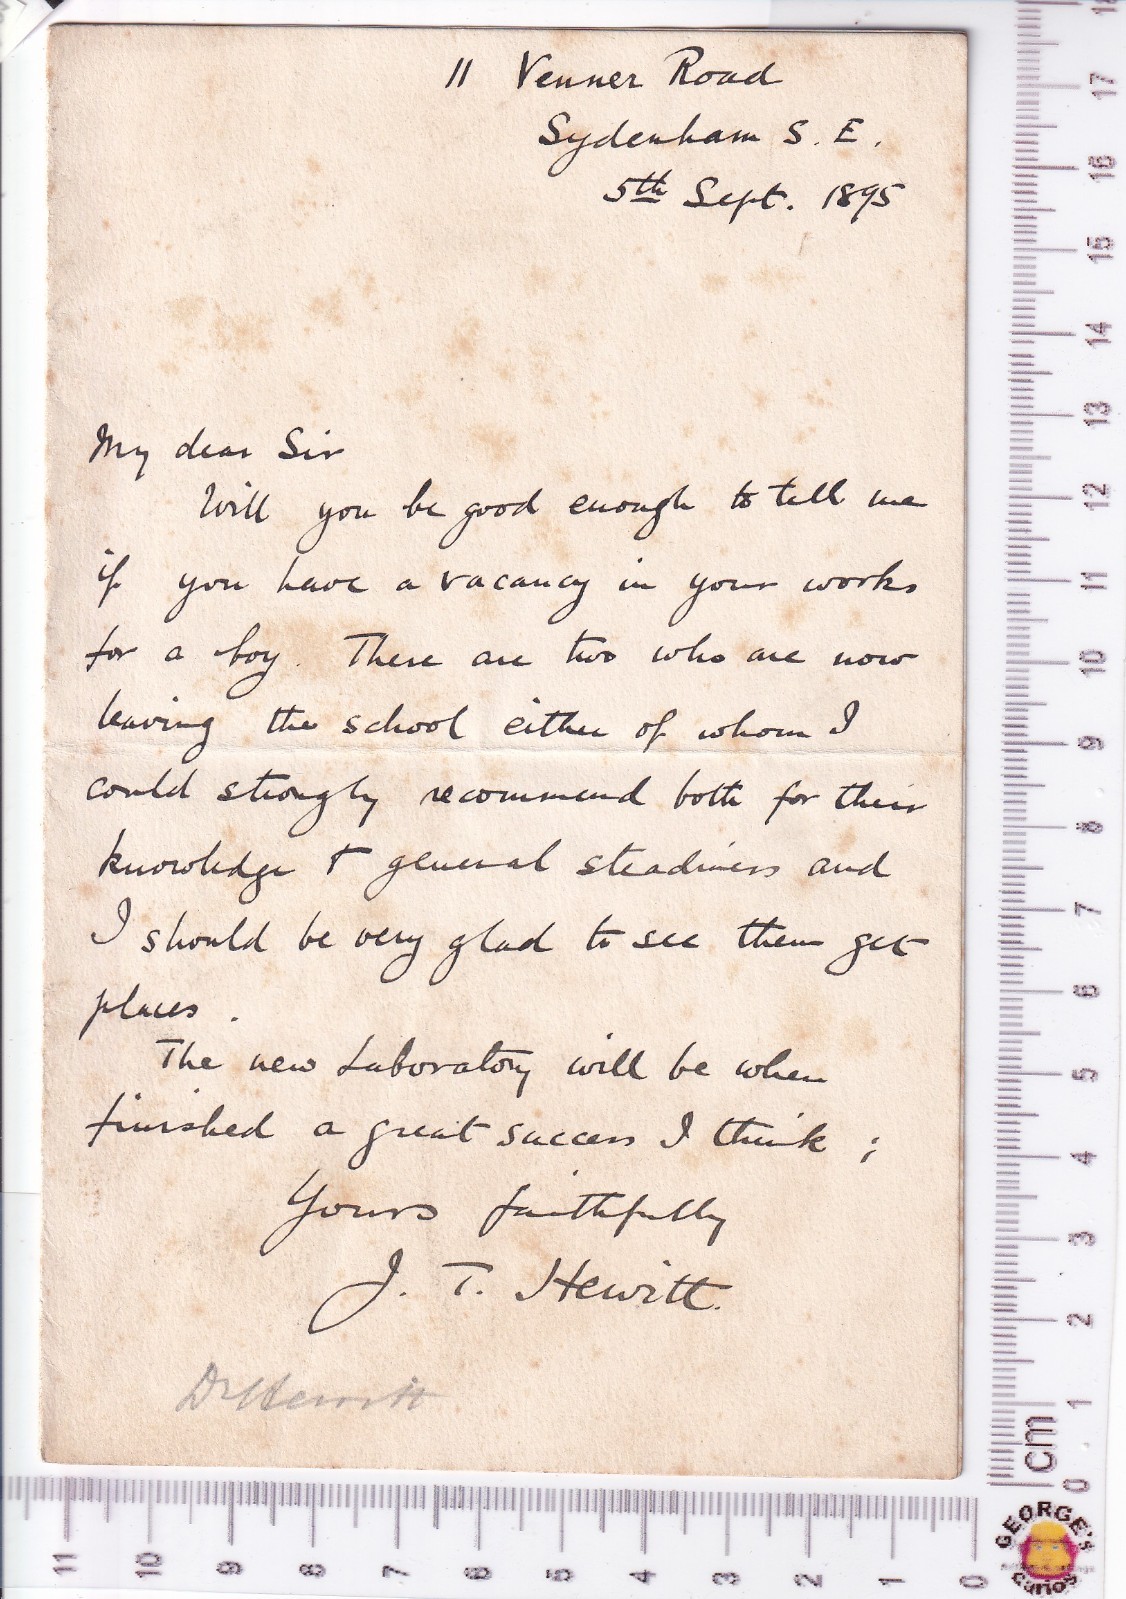 11 Venner Road
Sydenham S. E.
5th Sept. 1895
My dear Sir
Will you be good enough to tell me
if you have a vacancy in your works
for a boy. There are two who are now
leaving the school either of whom I
could strongly recommend both for their
knowledge & general steadiness and
I should be very glad to see them get
places.
The new Laboratory will be when
finished a great success I think;
Yours faithfully
J. T. Hewitt.
Dr Hewitt
17
16
15
14
13
12
11
10
9
8
7
6
5
4
3
2
1
0
cm
11
10
9
8
7
6
5
4
3
2
1
0
GEORGE'S
Curios